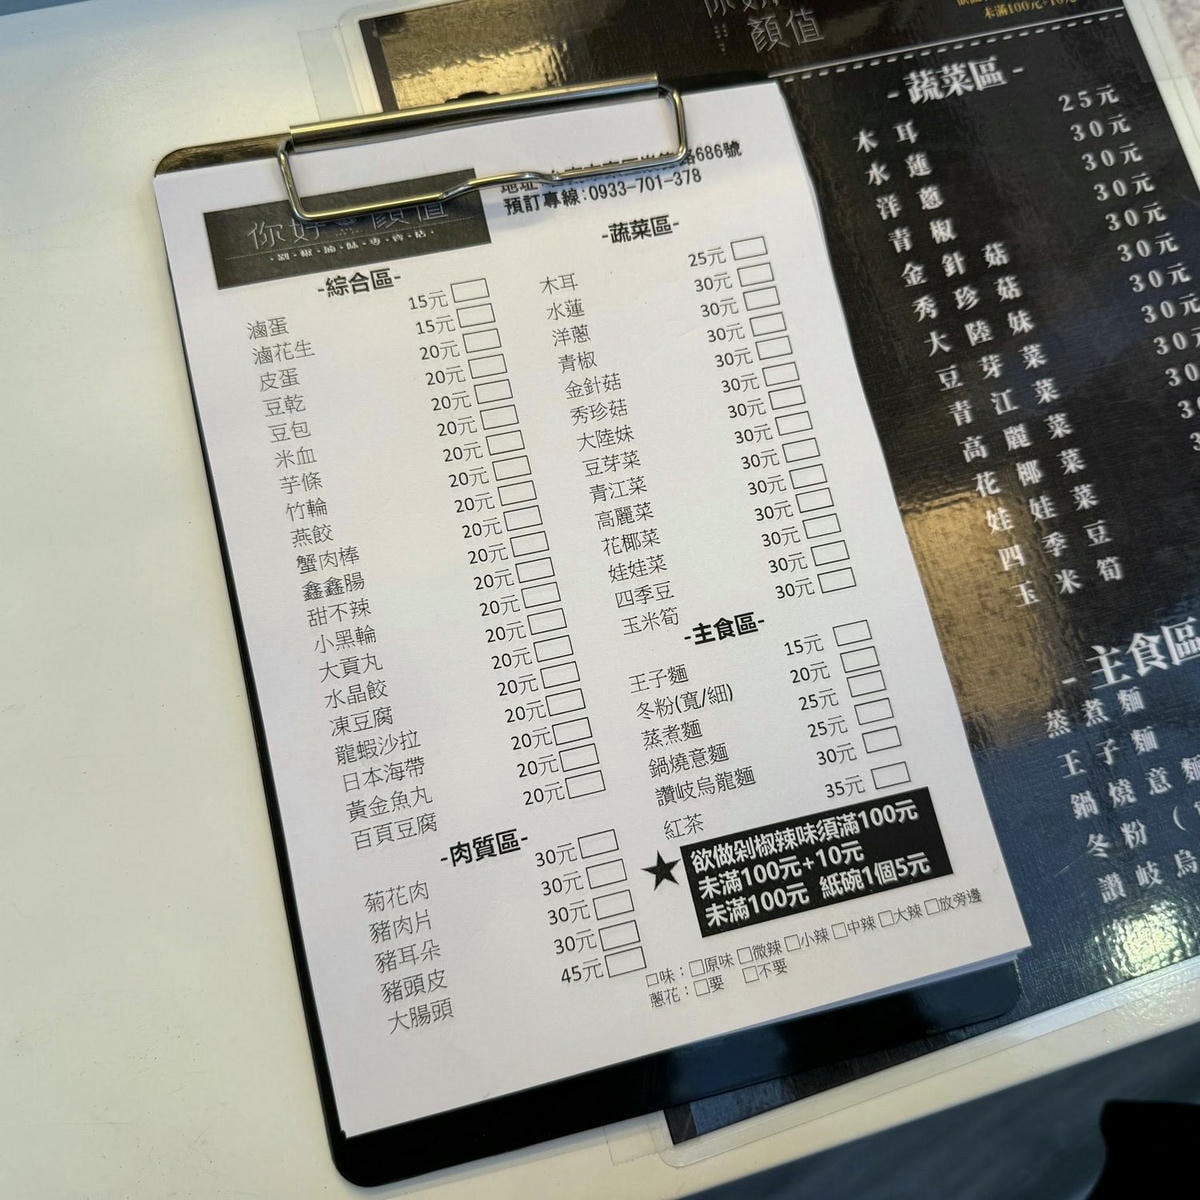 路686號
預訂專線:0933-701-378
你好 顏值
-綜合區-
滷蛋 15元
滷花生 15元
皮蛋 20元
豆乾 20元
豆包 20元
米血 20元
芋條 20元
竹輪 20元
燕餃 20元
蟹肉棒 20元
鑫鑫腸 20元
甜不辣 20元
小黑輪 20元
大貢丸 20元
水晶餃 20元
凍豆腐 20元
龍蝦沙拉 20元
日本海帶 20元
黃金魚丸 20元
百頁豆腐 20元
-肉質區-
菊花肉 30元
豬肉片 30元
豬耳朵 30元
豬頭皮 30元
大腸頭 45元
-蔬菜區-
木耳 25元
水蓮 30元
洋蔥 30元
青椒 30元
金針菇 30元
秀珍菇 30元
大陸妹 30元
豆芽菜 30元
青江菜 30元
高麗菜 30元
花椰菜 30元
娃娃菜 30元
四季豆 30元
玉米筍 30元
-主食區-
王子麵 15元
冬粉(寬/細) 20元
蒸煮麵 25元
鍋燒意麵 25元
讚岐烏龍麵 30元
紅茶 35元
★欲做剁椒辣味須滿100元
未滿100元+10元
未滿100元 紙碗1個5元
口味：□原味 □微辣 □小辣 □中辣 □大辣 □放旁邊
蔥花：□要 □不要
顏值
未滿100元+10元
-蔬菜區-
木耳 25元
水蓮 30元
洋蔥 30元
青椒 30元
金針菇 30元
秀珍菇 30元
大陸妹 30元
豆芽菜 30元
青江菜 30元
高麗菜
花椰菜
娃娃菜
四季豆
玉米筍
-主食區
蒸煮麵
王子麵
鍋燒意麵
冬粉(
讚岐烏